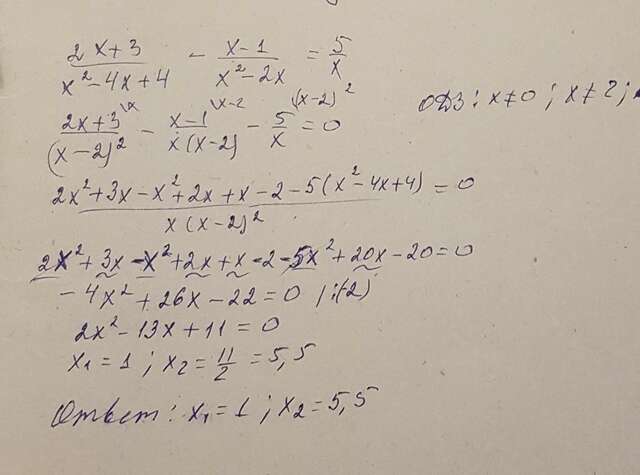 (2x+3)/(x²-4x+4) - (x-1)/(x²-2x) = 5/x
(2x+3)\x/(x-2)² - (x-1)\x-2/x(x-2) - 5(x-2)²/x = 0 ОДЗ: x≠0; x≠2;
(2x²+3x-x²+2x+x-2-5(x²-4x+4))/x(x-2)² = 0
2x²+3x-x²+2x+x-2-5x²+20x-20=0
-4x²+26x-22=0 |:(-2)
2x²-13x+11=0
x₁=1; x₂=11/2=5,5
Ответ: x₁=1; x₂=5,5